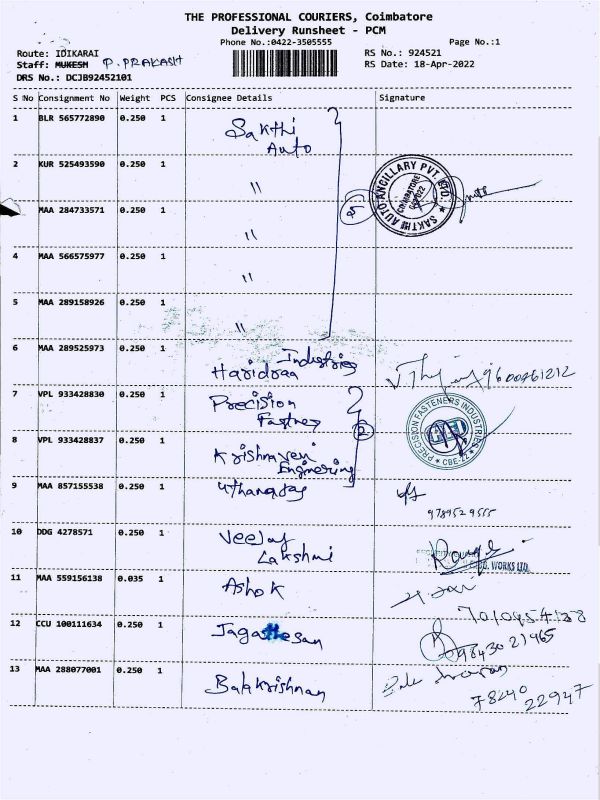 THE PROFESSIONAL COURIERS, Coimbatore
Delivery Runsheet - PCM
Phone No.:0422-3505555
Page No.:1
Route: IDIKARAI
RS No.: 924521
Staff: MUKESH P. PRAKASH
RS Date: 18-Apr-2022
DRS No.: DCJB92452101
S No Consignment No Weight PCS Consignee Details Signature
1 BLR 565772890 0.250 1 Sakthi
Auto
2 KUR 525493590 0.250 1 "
SAKTHI AUTO ANCILLARY PVT. LTD.
COIMBATORE
MAA 284733571 0.250 1 "
5
4 MAA 566575977 0.250 1 "
5 MAA 289158926 0.250 1 "
6 MAA 289525973 0.250 1 Industries
Haridraa
9600461212
7 VPL 933428830 0.250 1 Precision
Fastner
PRECISION FASTENERS INDUSTRIES
CBE-22
2
8 VPL 933428837 0.250 1 Krishnaveni
Enginering
9 MAA 857155538 0.250 1 Uthanaraj
9789529555
10 DDG 4278571 0.250 1 Veejay
Lakshmi
WORKS LTD.
11 MAA 559156138 0.035 1 Ashok
12 CCU 100111634 0.250 1 Jagatesan
9843021965
13 MAA 288077001 0.250 1 Balakrishnan
78240
22947